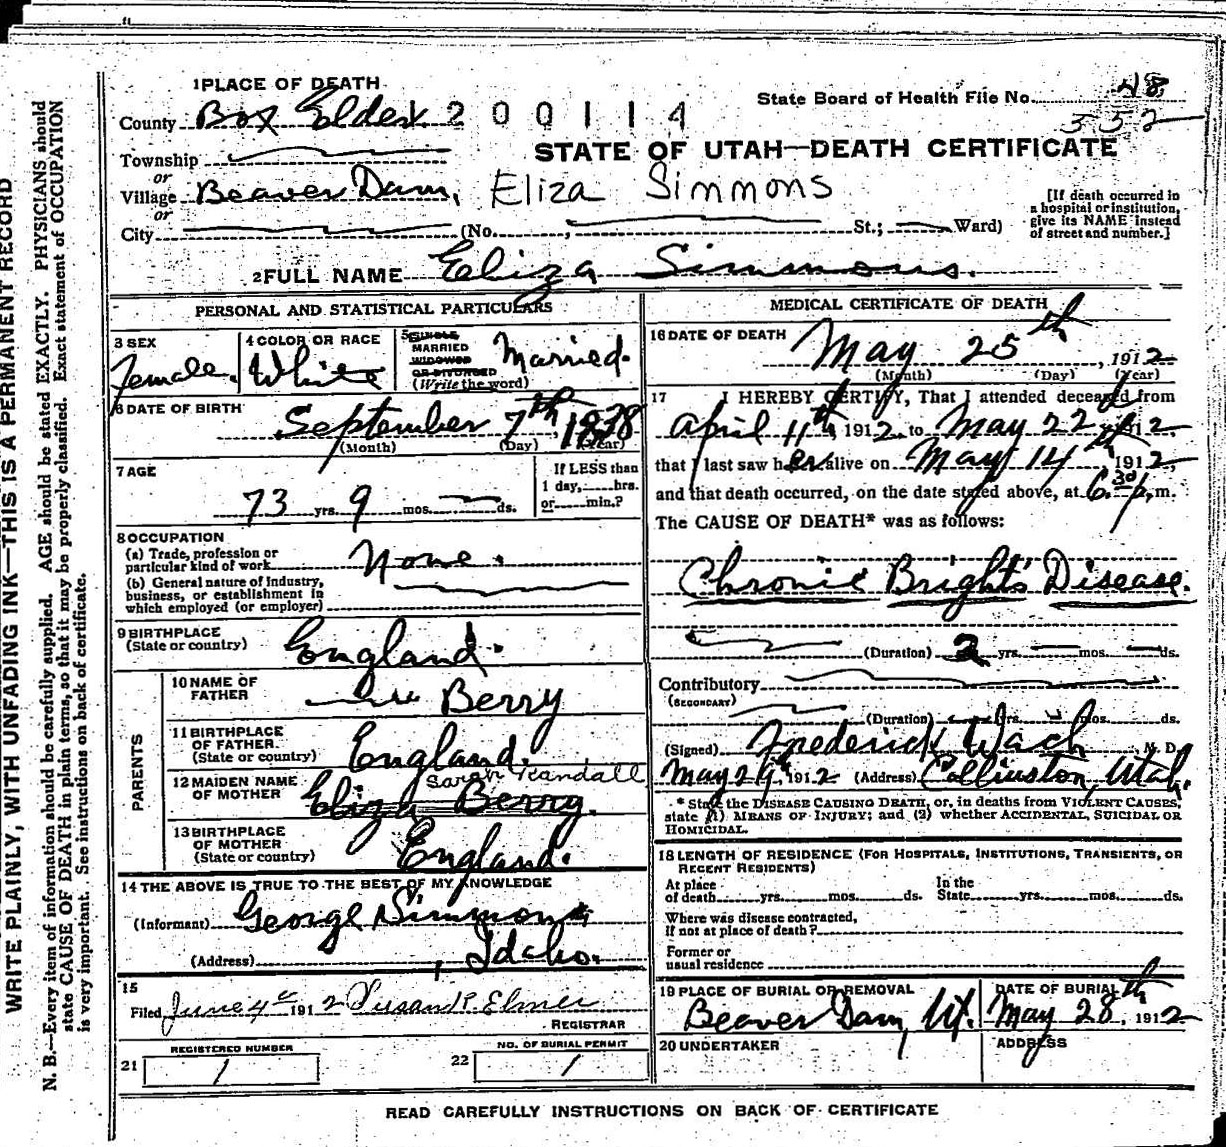 1 PLACE OF DEATH
County Box Elder 200114
State Board of Health File No. 48
352
STATE OF UTAH—DEATH CERTIFICATE
Township
or
Village Beaver Dam, Eliza Simmons
or
City (No. , St.; Ward)
[If death occurred in
a hospital or institution,
give its NAME instead
of street and number.]
2 FULL NAME Eliza Simmons.
PERSONAL AND STATISTICAL PARTICULARS
3 SEX
Female.
4 COLOR OR RACE
White
5 SINGLE
MARRIED
WIDOWED
OR DIVORCED
(Write the word)
Married.
6 DATE OF BIRTH
September 7th, 1838
(Month) (Day) (Year)
7 AGE
73 yrs. 9 mos. ds.
If LESS than
1 day,......hrs.
or......min.?
8 OCCUPATION
(a) Trade, profession or
particular kind of work None.
(b) General nature of Industry,
business, or establishment in
which employed (or employer)
9 BIRTHPLACE
(State or country) England.
PARENTS
10 NAME OF
FATHER Berry
11 BIRTHPLACE
OF FATHER
(State or country) England.
12 MAIDEN NAME
OF MOTHER Sarah Randall
Eliza Berry.
13 BIRTHPLACE
OF MOTHER
(State or country) England.
14 THE ABOVE IS TRUE TO THE BEST OF MY KNOWLEDGE
(Informant) George Simmons
(Address) , Idaho.
15
Filed June 4th 1912 Susan P. Elmer
REGISTRAR
REGISTERED NUMBER
21 1
NO. OF BURIAL PERMIT
22 1
MEDICAL CERTIFICATE OF DEATH
16 DATE OF DEATH
May 25th, 1912
(Month) (Day) (Year)
17 I HEREBY CERTIFY, That I attended deceased from
April 11th, 1912. to May 22d, 1912.
that I last saw her alive on May 14th 1912,
and that death occurred, on the date stated above, at 6.30 p.m.
The CAUSE OF DEATH* was as follows:
Chronic Bright's Disease.
(Duration) 2 yrs. mos. ds.
Contributory
(SECONDARY)
(Duration) yrs. mos. ds.
(Signed) Frederick Wach, M. D.
May 29th, 1912 (Address) Collinston, Utah.
* State the DISEASE CAUSING DEATH, or, in deaths from VIOLENT CAUSES,
state (1) MEANS OF INJURY; and (2) whether ACCIDENTAL, SUICIDAL OR
HOMICIDAL.
18 LENGTH OF RESIDENCE (FOR HOSPITALS, INSTITUTIONS, TRANSIENTS, OR
RECENT RESIDENTS)
At place
of death......yrs......mos......ds.
In the
State......yrs......mos......ds.
Where was disease contracted,
If not at place of death?
Former or
usual residence
19 PLACE OF BURIAL OR REMOVAL
Beaver Dam, Ut.
DATE OF BURIAL
May 28th, 1912
20 UNDERTAKER
ADDRESS
READ CAREFULLY INSTRUCTIONS ON BACK OF CERTIFICATE
WRITE PLAINLY, WITH UNFADING INK—THIS IS A PERMANENT RECORD
N. B.—Every item of information should be carefully supplied. AGE should be stated EXACTLY. PHYSICIANS should
state CAUSE OF DEATH in plain terms, so that it may be properly classified. Exact statement of OCCUPATION
is very important. See instructions on back of certificate.